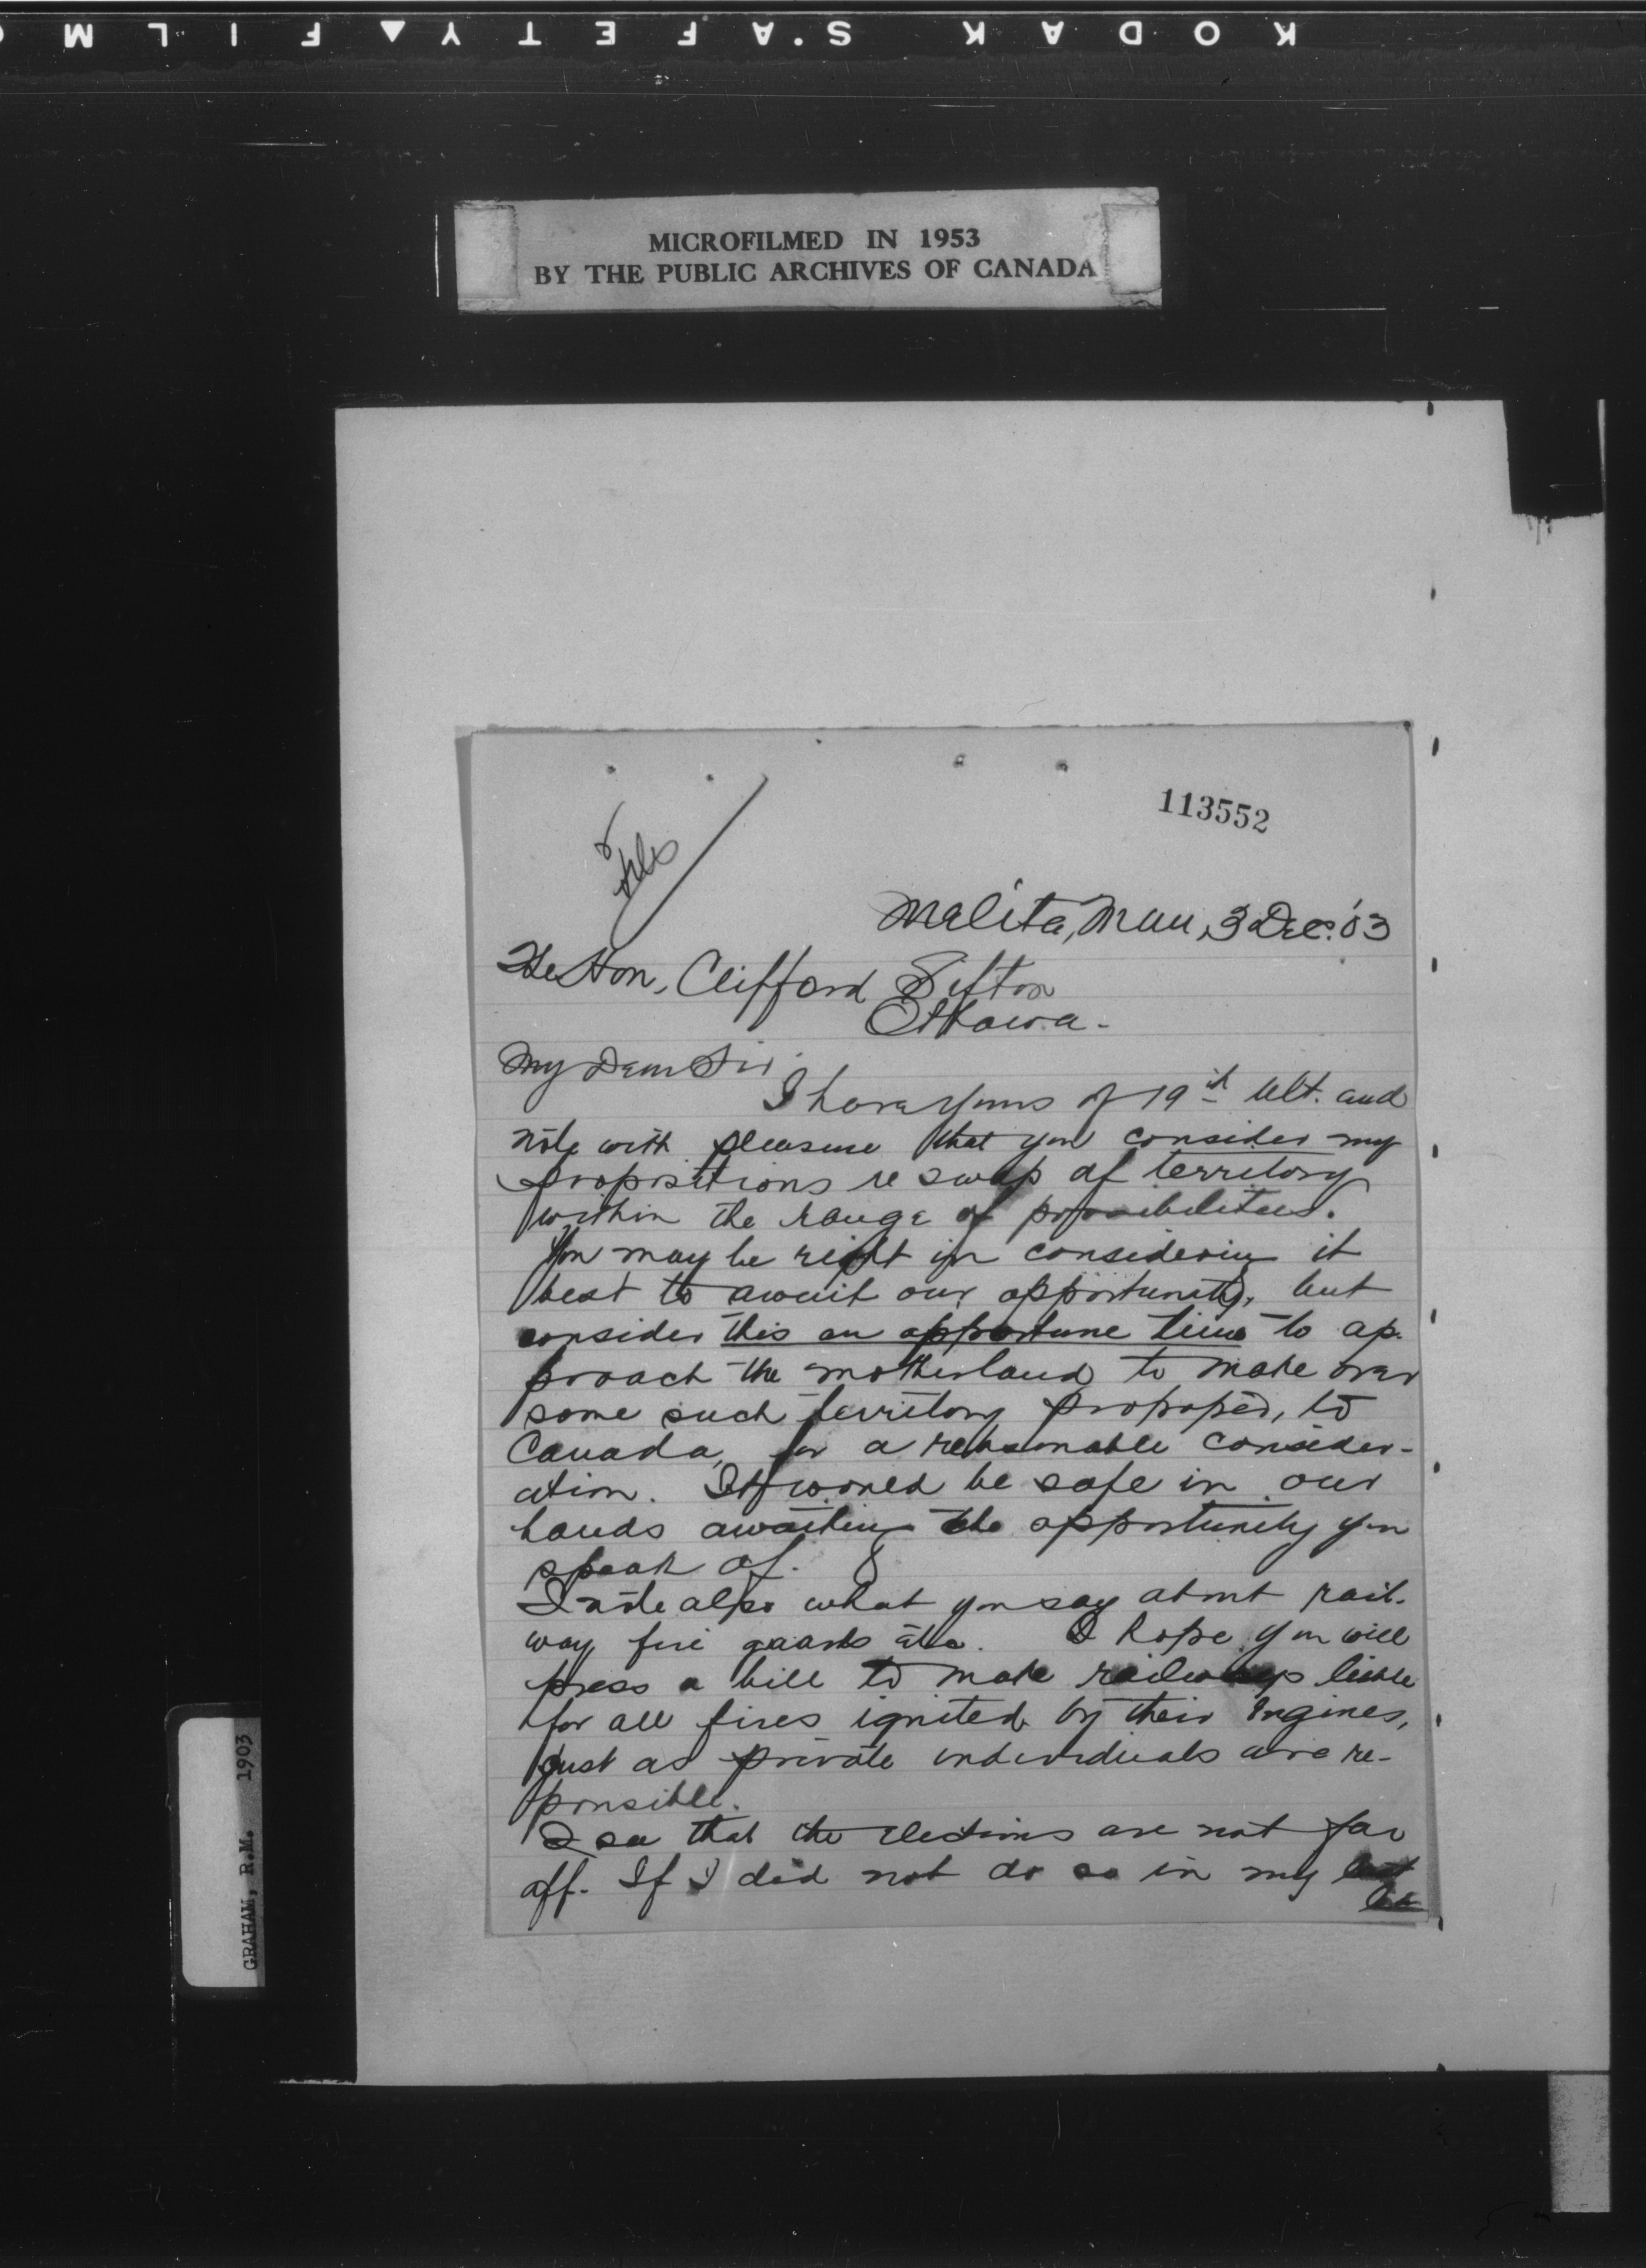 KODAK S'AFETY FILM
MICROFILMED IN 1953
BY THE PUBLIC ARCHIVES OF CANADA
113552
Melita, Man, 3 Dec. '03
The Hon. Clifford Sifton
Ottawa.
My Dear Sir
I have yours of 19th ult. and
note with pleasure that you consider my
propositions re swap of territory
within the range of possibilities.
You may be right in considering it
best to await our opportunity, but
consider this an opportune time to ap-
proach the motherland to make over
some such territory proposed, to
Canada, for a reasonable consider-
ation. It would be safe in our
hands awaiting the opportunity you
speak of.
I note also what you say about rail-
way fire guards etc. I hope you will
press a bill to make railways liable
for all fires ignited by their Engines,
just as private individuals are re-
ponsible.
I see that the elections are not far
off. If I did not do so in my last
GRAHAM, R.M. 1903